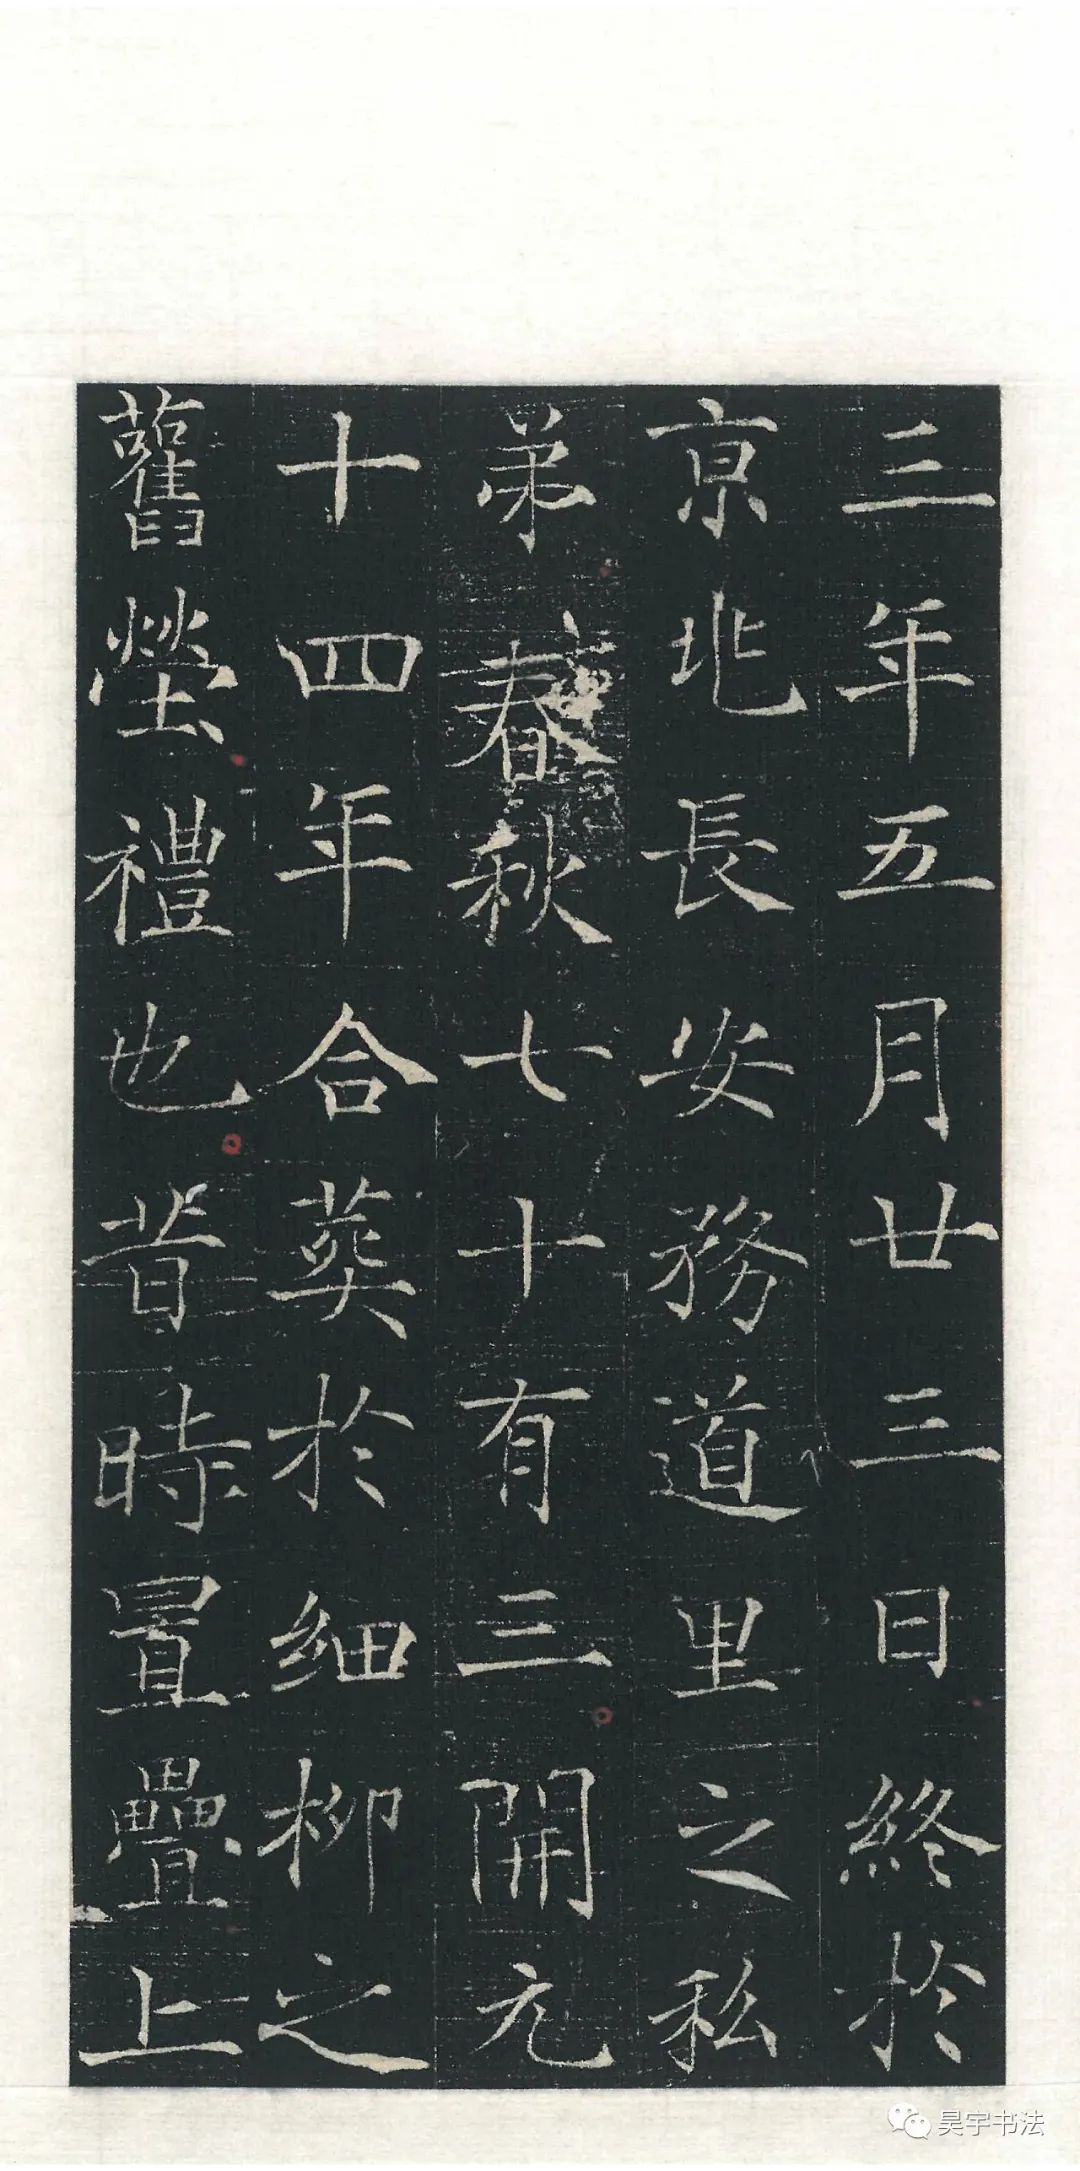 三年五月廿三日終於
京兆長安務道里之私
弟春秋七十有三開元
十四年合葬於細柳之
舊塋禮也昔時置疊上
昊宇书法